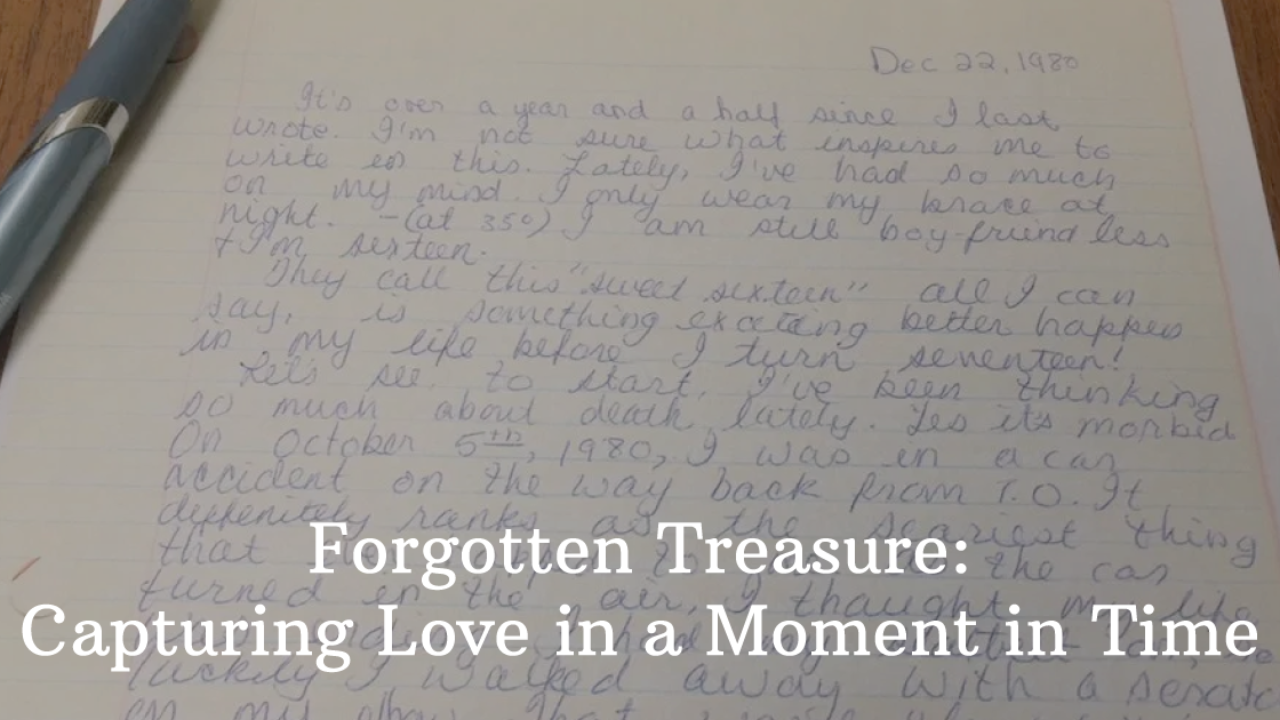 Dec 22, 1980
It's over a year and a half since I last
wrote. I'm not sure what inspires me to
write in this. Lately, I've had so much
on my mind. I only wear my brace at
night. - (at 35°) I am still boy-friend less
+ I'm sixteen.
They call this "sweet sixteen" all I can
say, is something exciting better happen
in my life before I turn seventeen!
Let's see, to start, I've been thinking
so much about death lately. Yes it's morbid
On October 5th, 1980, I was in a car
accident on the way back from T.O. It
deffenitely ranks as the scariest thing
that the car
turned in the air, I thought my life
luckily I walked away with a scratch
on my
Forgotten Treasure:
Capturing Love in a Moment in Time